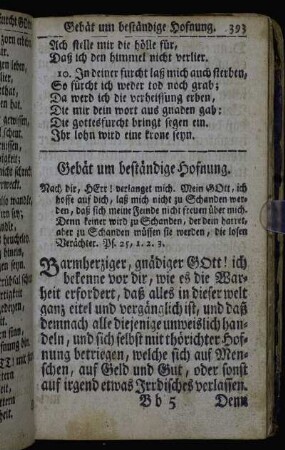 Gebät um beständige Hofnung. 393
Ach stelle mir die hölle für,
Daß ich den himmel nicht verlier.
10. In deiner furcht laß mich auch sterben,
So fürcht ich weder tod noch grab;
Da werd ich die verheissung erben,
Die mir dein wort aus gnaden gab:
Die gottesfurcht bringt segen ein,
Ihr lohn wird eine krone seyn.
Gebät um beständige Hofnung.
Nach dir, HErr! verlanget mich. Mein GOtt, ich
hoffe auf dich, laß mich nicht zu Schanden wer-
den, daß sich meine Feinde nicht freuen über mich.
Denn keiner wird zu Schanden, der dein harret,
aber zu Schanden müssen sie werden, die losen
Verächter. Ps. 25, 1. 2. 3.
Barmherziger, gnädiger GOtt! ich
bekenne vor dir, wie es die War-
heit erfordert, daß alles in dieser welt
ganz eitel und vergänglich ist, und daß
demnach alle diejenige unweislich han-
deln, und sich selbst mit thörichter Hof-
nung betriegen, welche sich auf Men-
schen, auf Geld und Gut, oder sonst
auf irgend etwas Irrdisches verlassen.
Bb 5 Denn